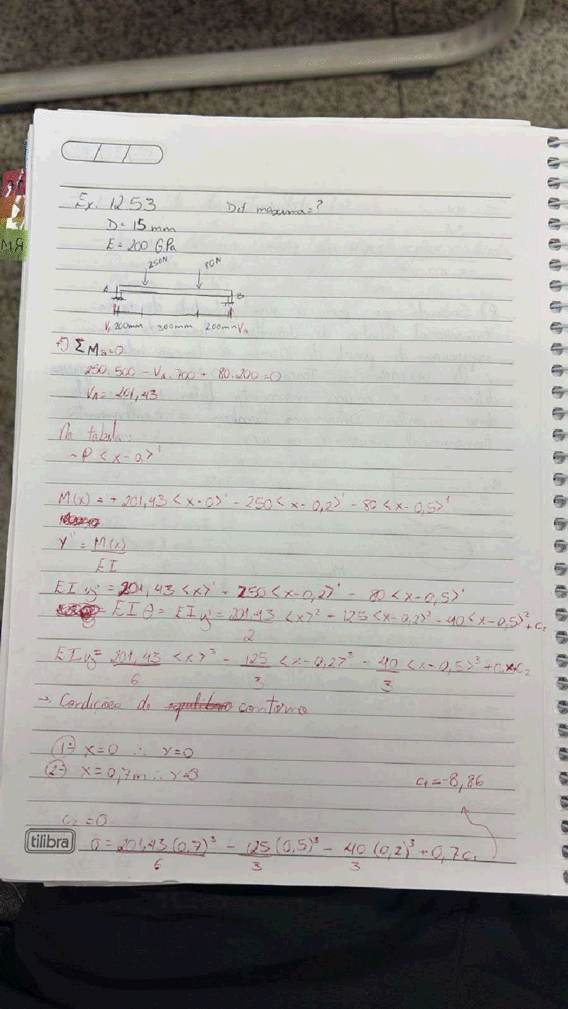 Ex. 1253 Def máxima=?
D= 15 mm
E= 200 GPa
250N 80N
A B
VA 200mm 300mm 200mm VB
+) ΣMB=0
250.500 - VA.700 + 80.200=0
VA= 201,43
Na tabela:
-P <x-a>¹
M(x)= +201,43<x-0>¹ - 250<x-0,2>¹ - 80<x-0,5>¹
y''= M(x)/EI
EI y''= 201,43 <x>¹ - 250<x-0,2>¹ - 80<x-0,5>¹
= EI θ = EI y' = 201,43/2 <x>² - 125<x-0,2>² - 40<x-0,5>² + c1
EI y= 201,43/6 <x>³ - 125/3 <x-0,2>³ - 40/3 <x-0,5>³ + c1x+c2
→ Condições de contorno
1ª x=0 ∴ y=0
2ª x=0,7m ∴ y=0
c1=-8,86
c2=0
tilibra
0= 201,43(0,7)³/6 - 125(0,5)³/3 - 40(0,2)³/3 + 0,7c1